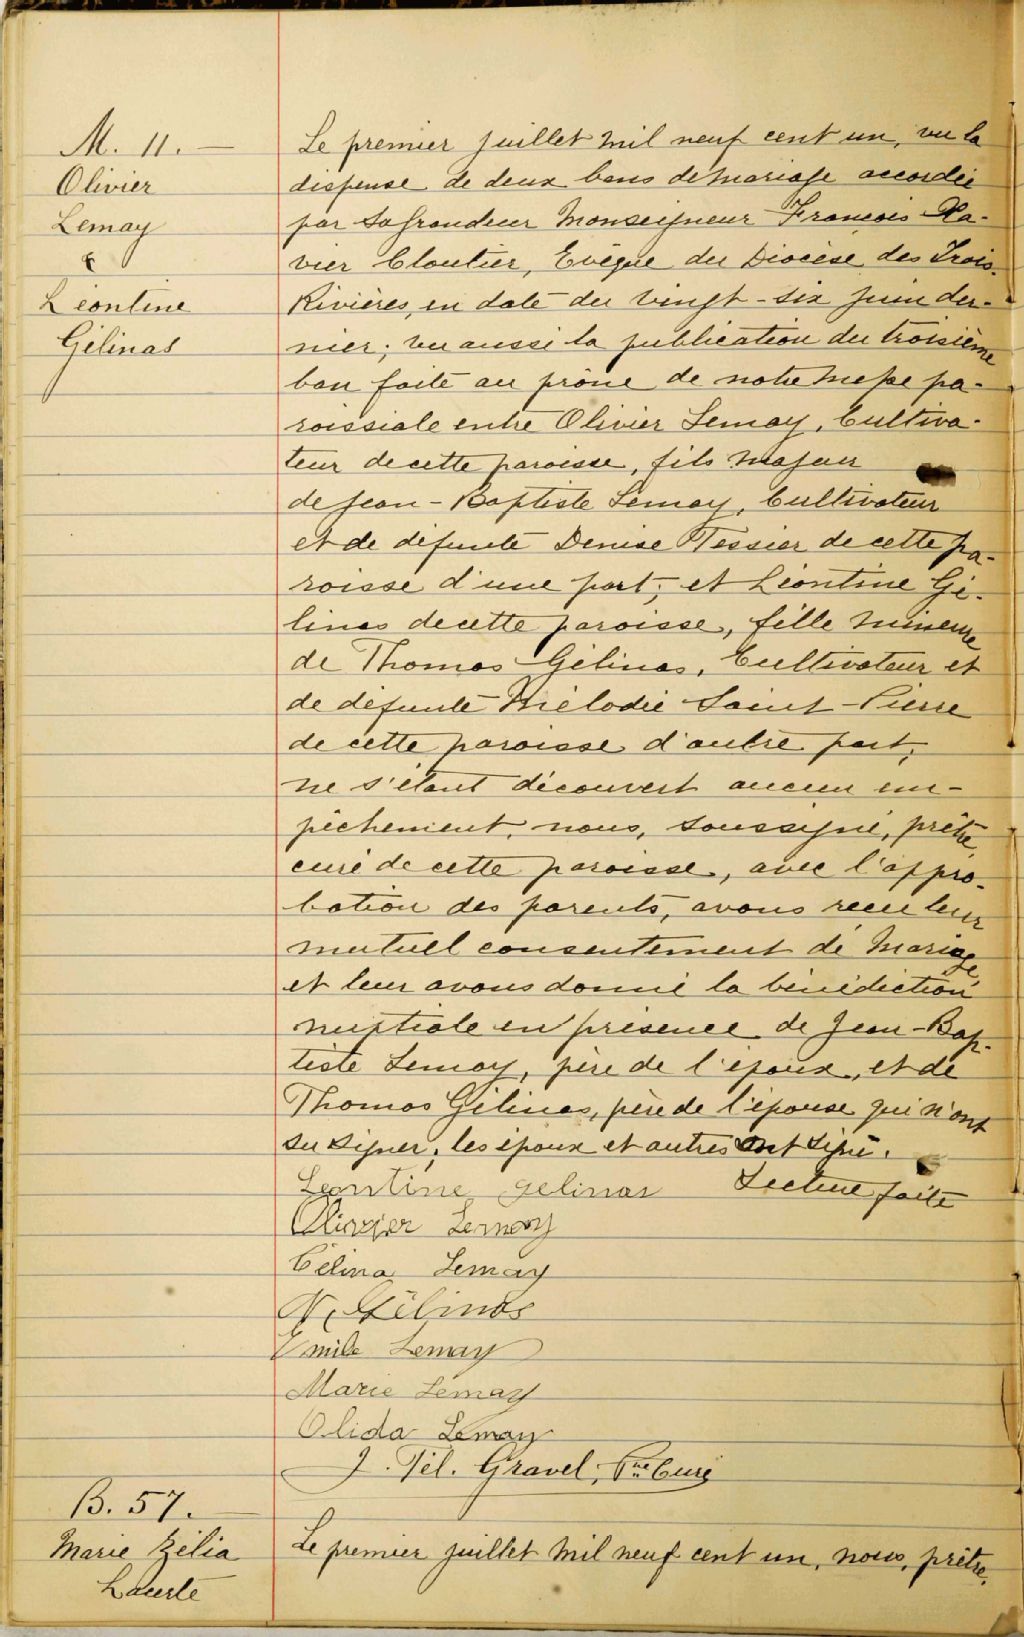 M. 11. —
Olivier
Lemay
&
Léontine
Gélinas
Le premier juillet mil neuf cent un, vu la
dispense de deux bans de mariage accordée
par Sa Grandeur Monseigneur François Xa-
vier Cloutier, Evêque du Diocèse des Trois-
Rivières, en date du vingt-six juin der-
nier; vu aussi la publication du troisième
ban faite au prône de notre messe pa-
roissiale entre Olivier Lemay, Cultiva-
teur de cette paroisse, fils majeur
de Jean-Baptiste Lemay, Cultivateur
et de défunte Denise Tessier de cette pa-
roisse d'une part; et Léontine Gé-
linas de cette paroisse, fille mineure
de Thomas Gélinas, Cultivateur et
de défunte Mélodie Saint-Pierre
de cette paroisse d'autre part;
ne s'étant découvert aucun em-
pêchement, nous, soussigné, prêtre,
curé de cette paroisse, avec l'appro-
bation des parents, avons reçu leur
mutuel consentement de mariage,
et leur avons donné la bénédiction
nuptiale en présence de Jean-Bap-
tiste Lemay, père de l'époux, et de
Thomas Gélinas, père de l'épouse qui n'ont
su signer, les époux et autres ont signé.
Lecture faite
Leontine gelinas
Olivier Lemay
Célina Lemay
N. Gélinas
Emile Lemay
Marie Lemay
Olida Lemay
J. Tél. Gravel, Ptre Curé
B. 57. —
Marie Zélia
Lacerte
Le premier juillet mil neuf cent un, nous, prêtre,